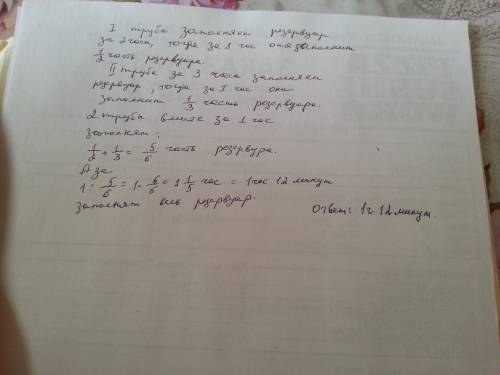 I труба заполняет резервуар
за 2 часа, тогда за 1 час она заполнит
1/2 часть резервуара.
II труба за 3 часа заполняет
резервуар, тогда за 1 час она
заполнит 1/3 часть резервуара.
2 трубы вместе за 1 час
заполнят:
1/2 + 1/3 = 5/6 часть резервуара.
А за
1 : 5/6 = 1 · 6/5 = 1 1/5 час = 1 час 12 минут
заполнят весь резервуар.
Ответ: 1ч. 12 минут.